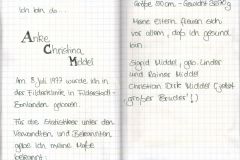 Ich bin da...
Anke
Christina
Middel
Am 8. Juli 1977 wurde ich in
der Filderklinik in Filderstadt-
Bonlanden geboren.
Für die Statistiker unter den
Verwandten und Bekannten
gebe ich meine Maße
bekannt:
Größe 50cm - Gewicht 3570g
Meine Eltern freuen sich
vor allem, daß ich gesund
bin.
Sigrid Middel, geb. Linder
und Rainer Middel
Christian Dirk Middel (jetzt
"großer Bruder"!)